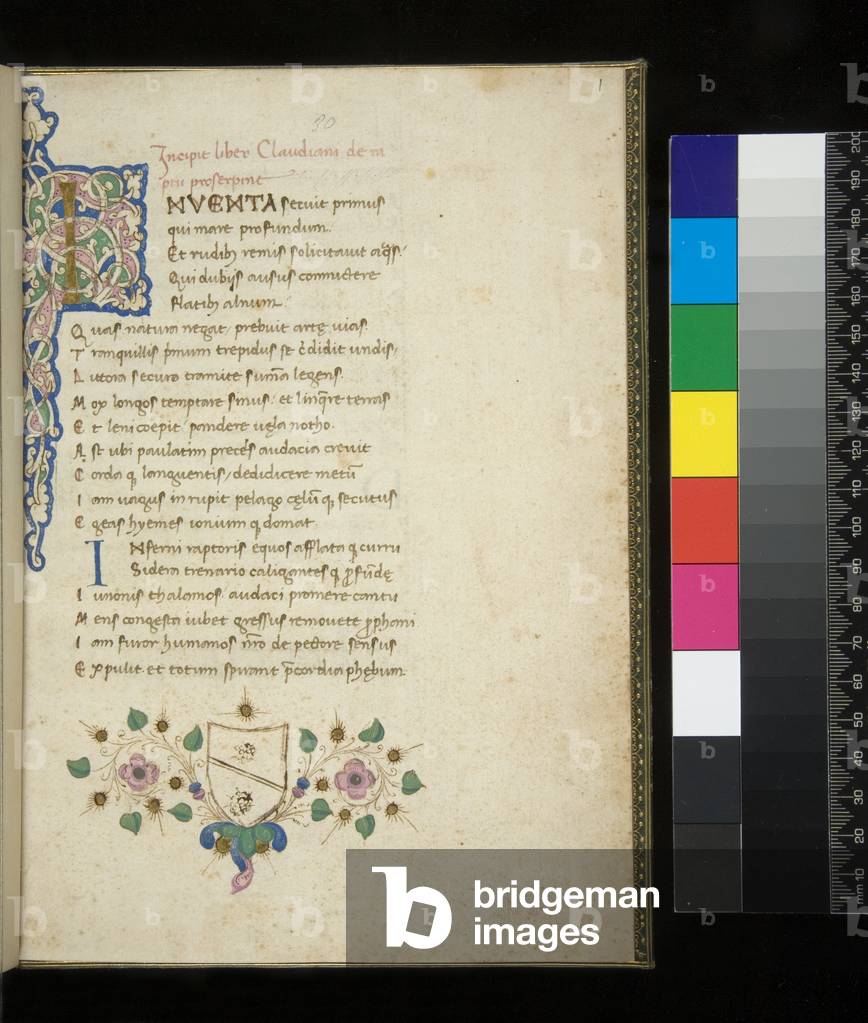 1
30
Incipit liber Claudiani de ra
ptu proserpine
INVENTA secuit primus
qui mare profundum.
Et rudibꝫ remis solicitauit aq̃s.
Qui dubijs ausus committere
flatibꝫ alnum.
Quas natura negat, prebuit arte uias.
Tranquillis p̃mum trepidus se c̃didit undis,
Littora securo tramite sum̃a legens.
Mox longos temptare sinus, et linq̃re terras
Et leni coepit pandere uela notho.
Ast ubi paulatim preces audacia creuit
Cordaqꝫ languentis, dedidicere metũ
Iam uagus inrupit pelago cęlũqꝫ secutus
Egeas hyemes ioniumqꝫ domat.
INferni raptoris equos afflataqꝫ curru
Sidera trenario caligantesqꝫ ꝓfũdę
Iunonis thalamos, audaci promere cantu
Mens congesta iubet gressus remouete ꝓphani
Iam furor humanos nr̃o de pectore sensus
Expulit. et totum spirant p̃cordia phębum
b
bridgeman
images
mm 10 20 30 40 50 60 70 80 90 100 110 120 130 140 150 160 170 180 190 200